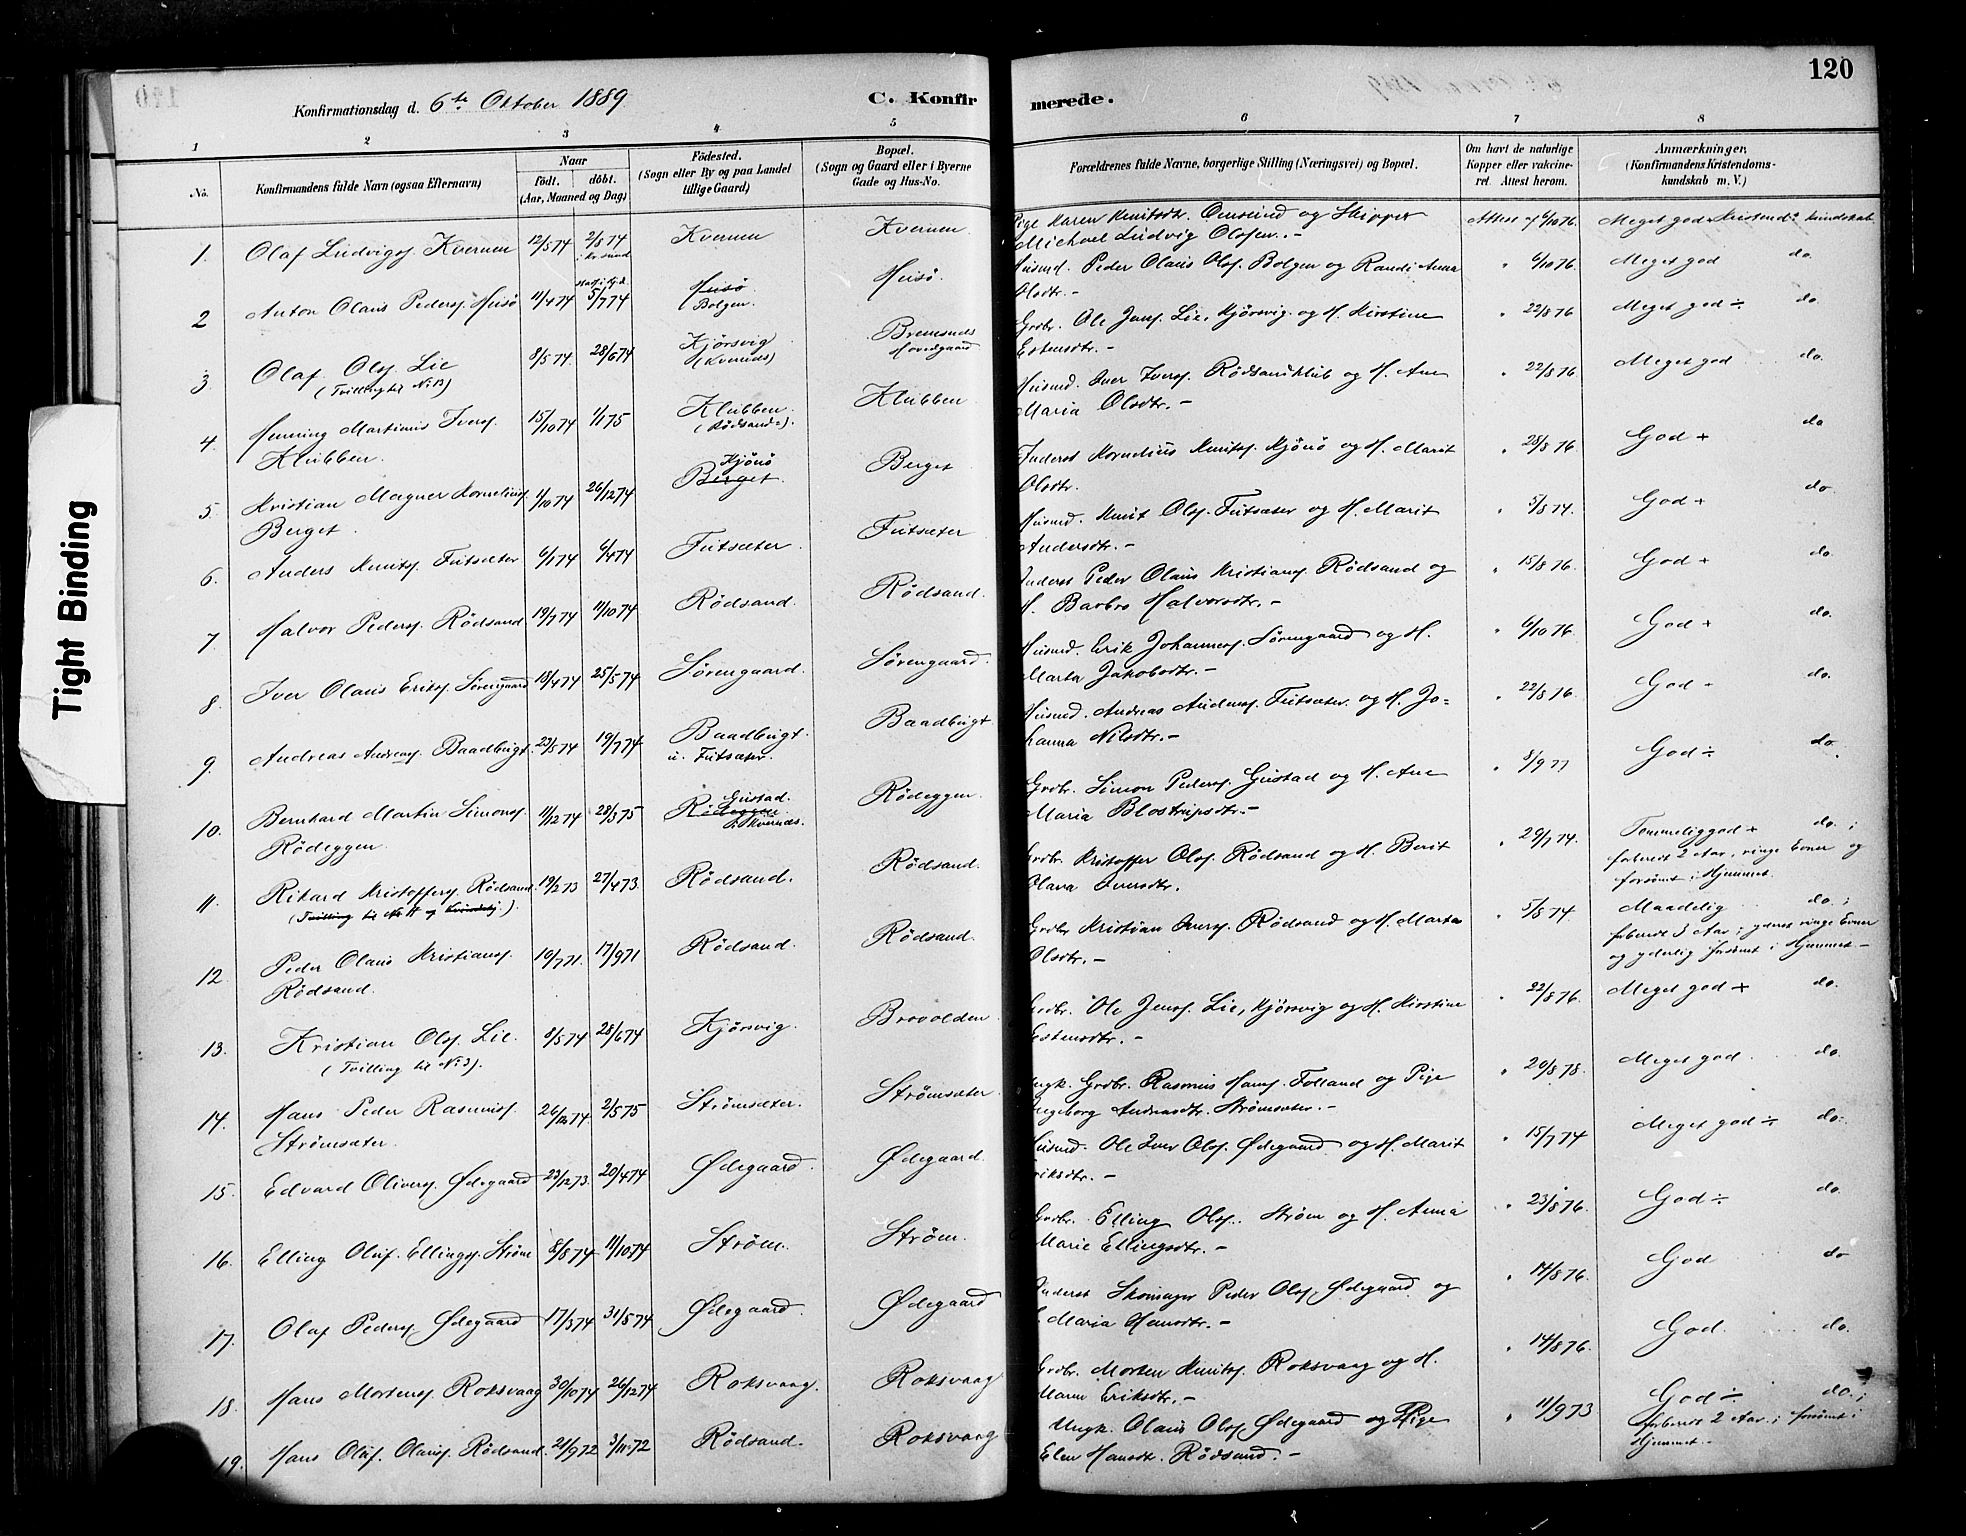 120
Konfirmationsdag d. 6te Oktober 1889
C. Konfirmerede.
1 2 3 4 5 6 7 8
No. Konfirmandens fulde Navn (ogsaa Efternavn) Naar Födt. döbt. (Aar, Maaned og Dag) Födested. (Sogn eller By og paa Landet tillige Gaard) Bopæl. (Sogn og Gaard eller i Byerne Gade og Hus-No. Forældrenes fulde Navne, borgerlige Stilling (Næringsvei) og Bopæl. Om havt de naturlige Kopper eller vakcineret. Attest herom. Anmærkninger, (Konfirmandens Kristendomskundskab m. V.)
1. Olaf Ludvigs. Kvernen 12/5 74 2/8 74 Kvernen Kvernen Pige Karen Knutsdtr. og Skipper Michael Ludvig Olsen.- Attest af 6/10 76 Meget god + Kristend. kundskab
2 Anton Olaus Peders. Husö 11/4 74 5/7 74 Husö Bolgen. Husö Husmd. Peder Olaus Ols. Bolgen og Randi Anna Olsdtr.- " 6/10 76. Meget god do.
3. Olaf Ols. Lie (Tvilling til No 13) 8/5 74 28/6 74 Kjörsvig (Kvernes) Bremsnes Hovedgaard Grdbr. Ole Jens. Lie, Kjörsvig og H. Kirstine Estensdtr.- " 22/8 76 Meget god ÷ do.
4. Henning Martinus Ivers. Klubben. 15/10 74 1/1 75 Klubben. (Rödsand=). Klubben Husmd. Iver Ivers. Rödsandklub og H. Ane Maria Olsdtr.- " 22/8 76 Meget god do.
5. Kristian Magner Kornelius. Berget. 1/10 74 26/12 74 Kjönö Berget. Berget Inderst Kornelius Knuts. Kjönö og H. Marit Olsdtr. " 28/8 76 God + do
6. Anders Knuts. Futsæter 6/1 74 6/4 74 Futsæter. Futsæter Husmd. Knut Ols. Futsæter og H. Marit Andersdtr.- " 5/8 74. God + do.
7. Halvor Peders. Rödsand 19/7 74 11/10 74 Rödsand. Rödsand. Inderst Peder Olaus Kristians. Rödsand og H. Barbro Halvorsdtr.- " 15/8 76. God + do.
8. Iver Olaus Eriks. Sørengaard 18/4 74 25/5 74 Sørengaard. Sørengaard. Husmd. Erik Johannes. Sørengaard og H. Marta Jakobsdtr.- " 6/10 76. God + do.
9. Andreas Andreas. Baadbugt. 23/5 74 19/7 74 Baadbugt. u. Futsæter. Baadbugt Husmd. Andreas Anders. Futsæter og H. Johanna Nilsdtr.- " 22/8 76. God + do.
10. Bernhard Martin Simons. Rödeggen. 11/12 74 28/3 75 Gustad. Rödeggen i Kvernes. Rödeggen Grdbr. Simon Peders. Gustad og H. Ane Maria Blostrupsdtr.- " 8/9 77 God ÷ do.
11. Rikard Kristoffers. Rödsand. (Tvilling til No 11 og Kvindekj.). 19/2 73 27/4 73. Rödsand. Rödsand. Grdbr. Kristoffer Ols. Rödsand og H. Berit Olava Iversdtr. " 29/7 74. Temmelig god + do.; forberedt 2 Aar, ringe Evner og forsømt i Hjemmet.
12. Peder Olaus Kristians. Rödsand. 10/7 71. 17/9 71 Rödsand. Rödsand. Grdbr Kristian Ivers. Rödsand og H. Marta Olsdtr.- " 5/8 74 Maadelig do.; forberedt 3 Aar; yderst ringe Evner og yderlig forsømt i Hjemmet-
13. Kristian Ols. Lie. (Tvilling til No 3). 8/5 74 28/6 74 Kjörsvig. Brovolden Grdbr. Ole Jens. Lie, Kjörsvig og H. Kirstine Estensdtr.- " 22/8 76. Meget god + do.
14. Hans Peder Rasmus. Strömsæter. 26/12 74. 2/5 75 Strömsæter. Strömsæter Ungk. Grdbr. Rasmus Hans. Folland og Pige Ingeborg Andreasdtr. Strömsæter.- " 20/8 78. Meget god. do.
15. Edvard Olivers. Ødegaard 23/12 73. 20/4 74 Ødegaard. Ødegaard. Husmd. Ole Iver Ols. Ødegaard og H. Marit Eriksdtr.- " 15/7 74 Meget god ÷ do.
16. Elling Oluf Ellings. Strøm 8/8 74. 11/10 74 Strøm. Strøm. Grdbr. Elling Ols. Strøm og H. Anna Marie Ellingsdtr.- " 23/8 76. God ÷ do.
17. Olaf Peders. Ødegaard 17/3 74 31/5 74 Ødegaard. Ødegaard Inderst Skomager Peder Ols. Ødegaard og H. Maria Hansdtr.- " 14/8 76. God do
18. Hans Mortens. Roksvaag 30/10 74 26/12 74 Roksvaag. Roksvaag Grdbr. Morten Knuts. Roksvaag og H. Maren Eriksdtr.- " 14/8 76. God. do.
19. Hans Oluf Olaus. Rödsand. 21/9 72 3/11 72 Rödsand. Roksvaag Ungk. Olaus Ols. Ødegaard og Pige Elen Hansdtr. Rödsand.- " 11/9 73 God ÷ do.; forberedt 2 Aar; forsømt i Hjemmet.-
Tight Binding